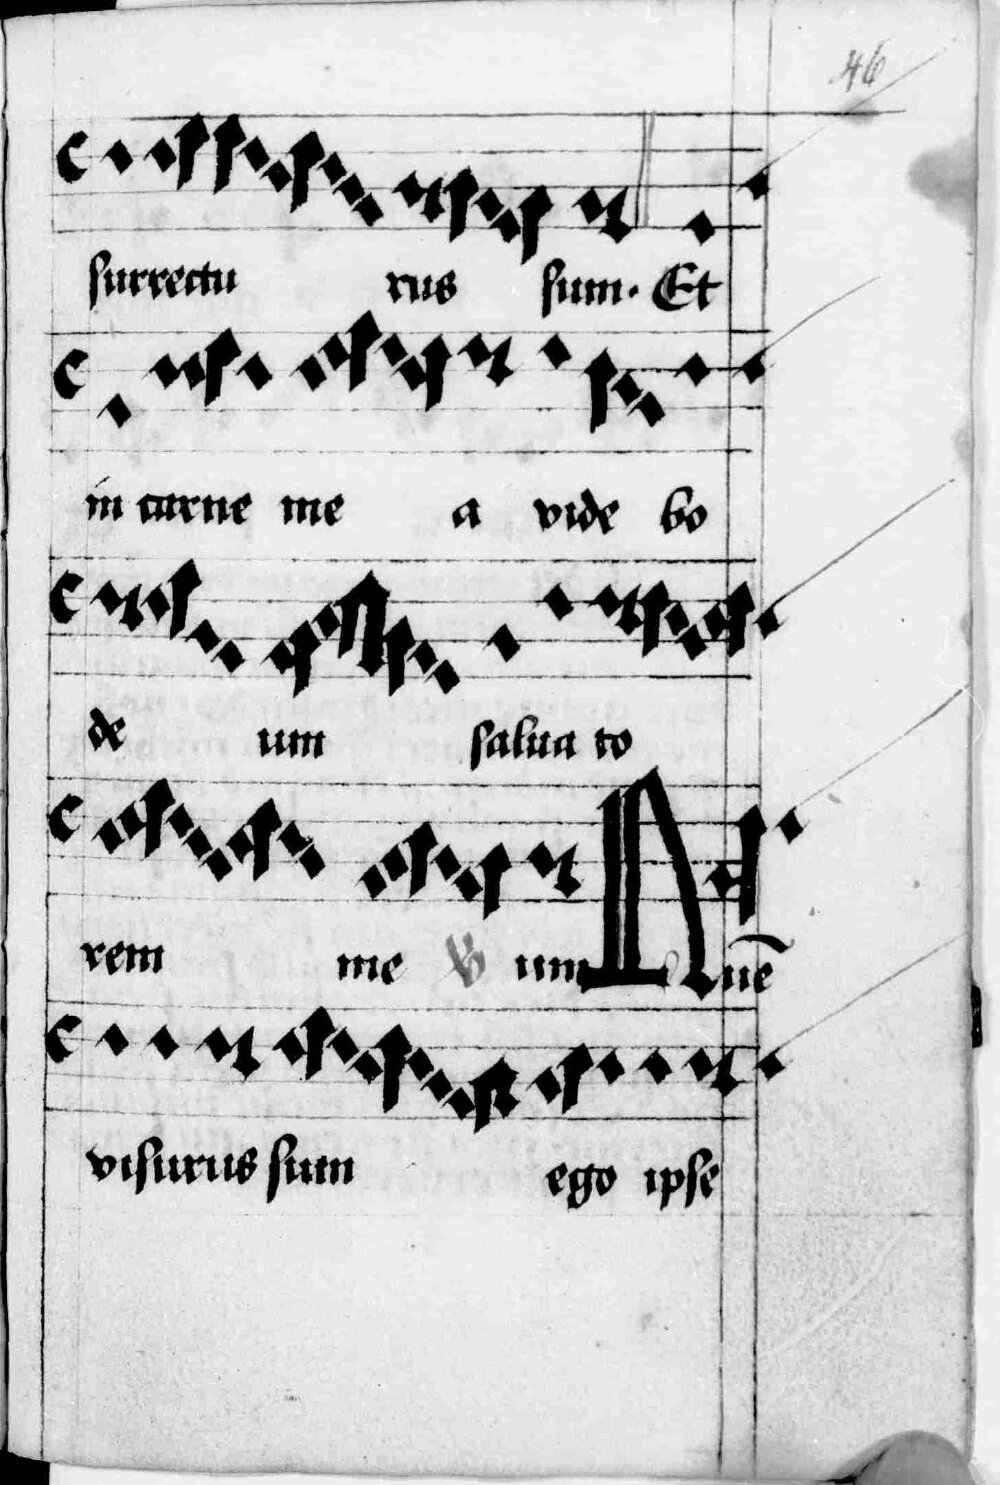 46
surrectu rus sum. Et
in carne me a vide bo
de um salua to
rem me ℣ um Quē
visurus sum ego ipse